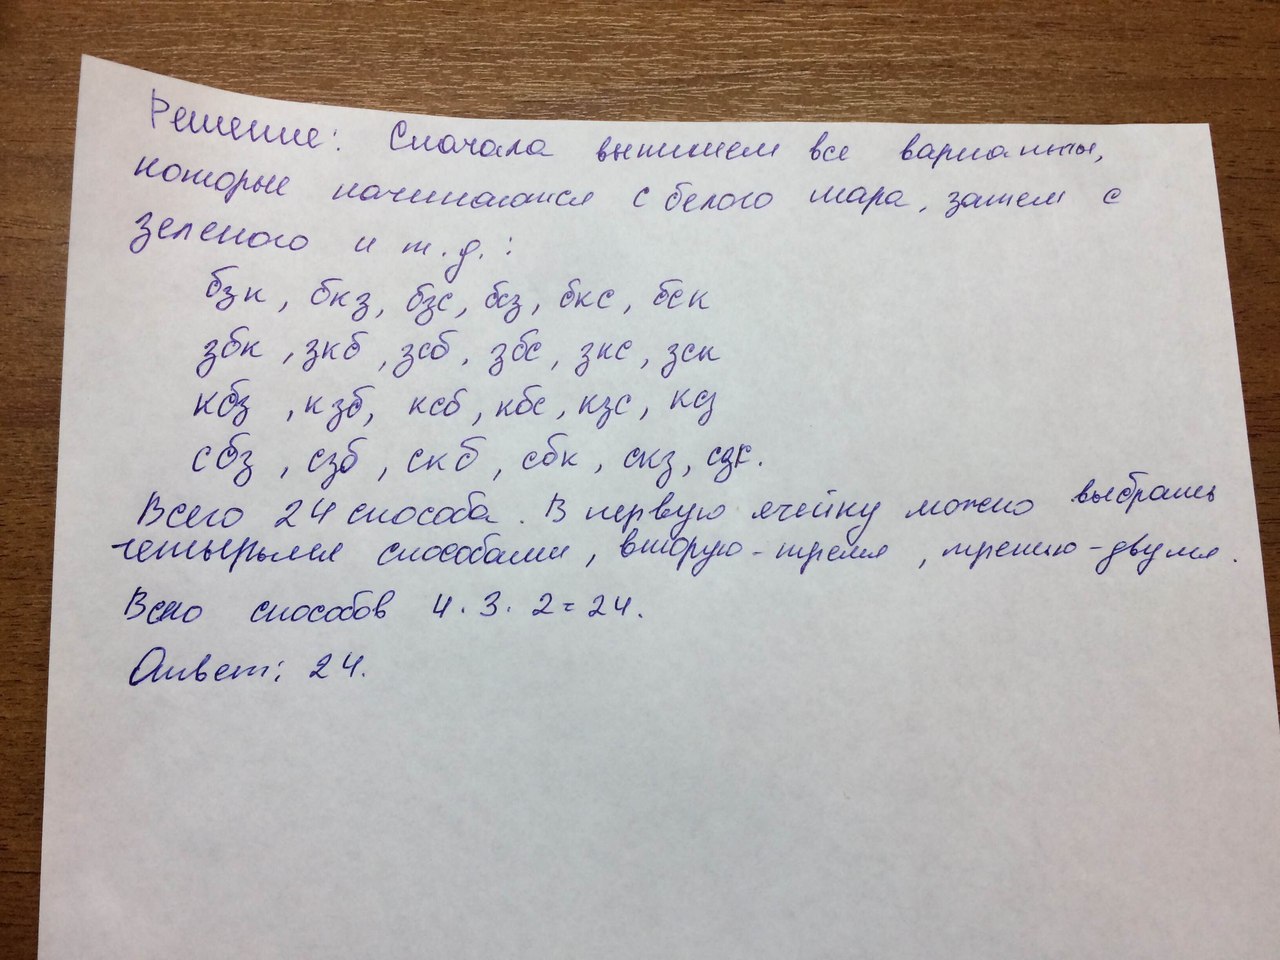 Решение: Сначала выпишем все варианты,
которые начинаются с белого шара, затем с
зеленого и т.д.:
бзк, бкз, бзс, бсз, бкс, бск
збк, зкб, зсб, збс, зкс, зск
кбз, кзб, ксб, кбс, кзс, ксз
сбз, сзб, скб, сбк, скз, сзк.
Всего 24 способа. В первую ячейку можно выбрать
четырьмя способами, вторую - тремя, третью - двумя.
Всего способов 4 · 3 · 2 = 24.
Ответ: 24.